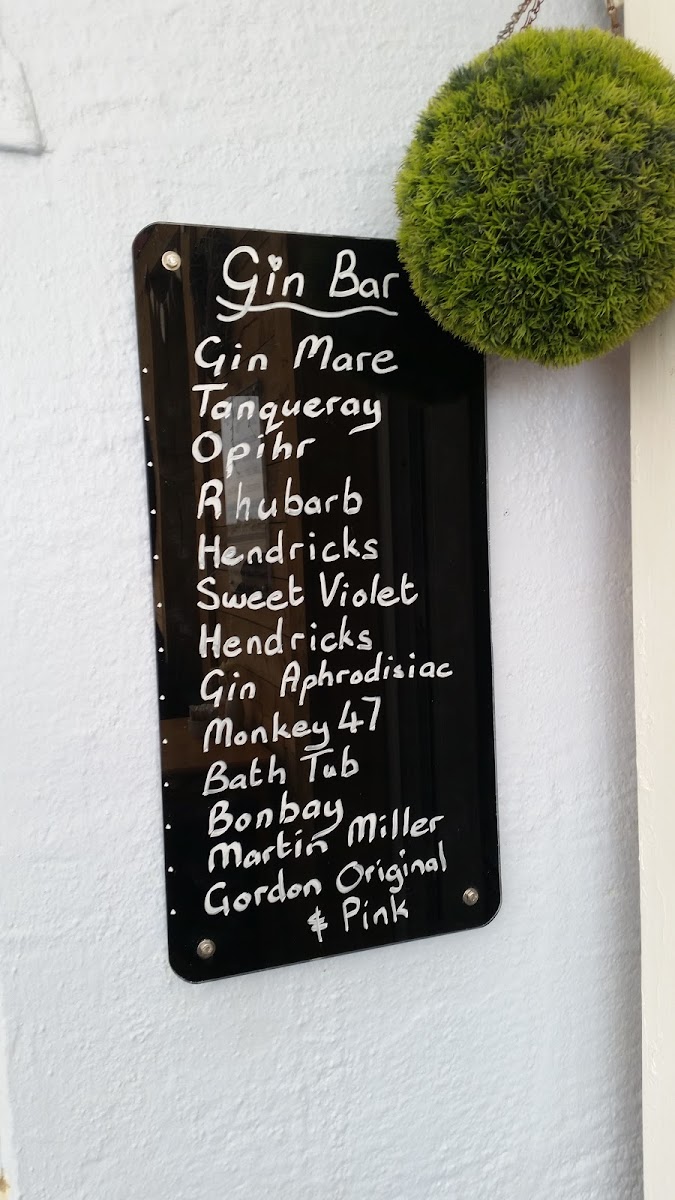 Gin Bar
Gin Mare
Tanqueray
Opihr
Rhubarb
Hendricks
Sweet Violet
Hendricks
Gin Aphrodisiac
Monkey 47
Bath Tub
Bonbay
Martin Miller
Gordon Original
& Pink